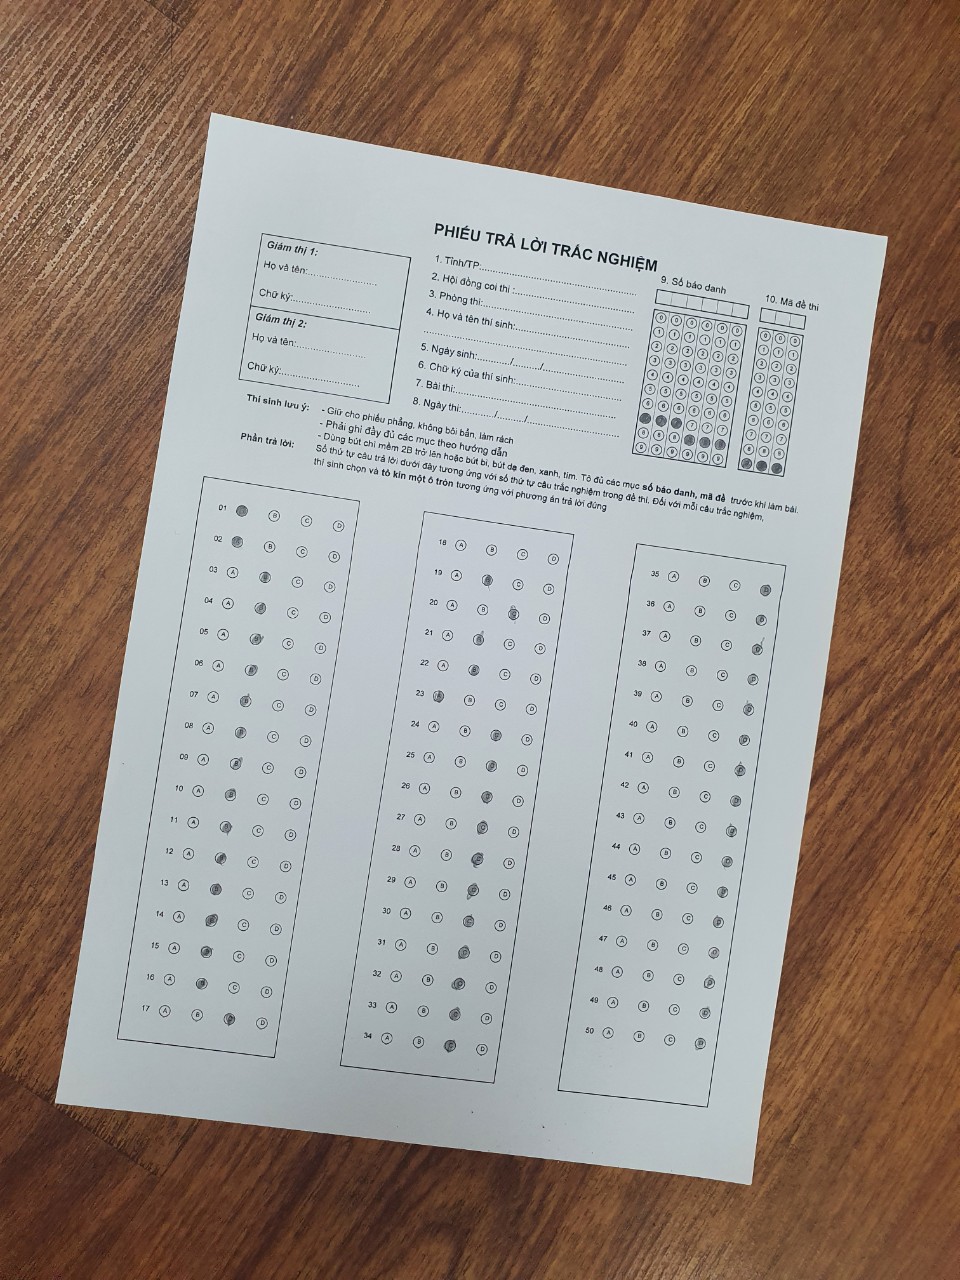 PHIẾU TRẢ LỜI TRẮC NGHIỆM
Giám thị 1:
Họ và tên:........................
Chữ ký:...........................
Giám thị 2:
Họ và tên:........................
Chữ ký:...........................
1. Tỉnh/TP:..................................................
2. Hội đồng coi thi :......................................
3. Phòng thi:................................................
4. Họ và tên thí sinh:....................................
..................................................................
5. Ngày sinh:.........../........./..........................
6. Chữ ký của thí sinh:..................................
7. Bài thi:.....................................................
8. Ngày thi:.........../........./............................
9. Số báo danh
0 0 0 0 0 0
1 1 1 1 1 1
2 2 2 2 2 2
3 3 3 3 3 3
4 4 4 4 4 4
5 5 5 5 5 5
6 6 6 6 6 6
7 7 7
8 8 8
9 9 9 9 9 9
10. Mã đề thi
0 0 0
1 1 1
2 2 2
3 3 3
4 4 4
5 5 5
6 6 6
7 7 7
8 8 8
Thí sinh lưu ý:
- Giữ cho phiếu phẳng, không bôi bẩn, làm rách
- Phải ghi đầy đủ các mục theo hướng dẫn
- Dùng bút chì mềm 2B trở lên hoặc bút bi, bút dạ đen, xanh, tím. Tô đủ các mục số báo danh, mã đề trước khi làm bài.
Phần trả lời:
Số thứ tự câu trả lời dưới đây tương ứng với số thứ tự câu trắc nghiệm trong đề thi. Đối với mỗi câu trắc nghiệm,
thí sinh chọn và tô kín một ô tròn tương ứng với phương án trả lời đúng
01 B C D
02 B C D
03 A B C D
04 A B C D
05 A B C D
06 A B C D
07 A B C D
08 A B C D
09 A B C D
10 A B C D
11 A B C D
12 A B C D
13 A B C D
14 A B C D
15 A B C D
16 A B C D
17 A B C D
18 A B C D
19 A B C D
20 A B C D
21 A B C D
22 A B C D
23 A B C D
24 A B C D
25 A B C D
26 A B C D
27 A B C D
28 A B C D
29 A B C D
30 A B C D
31 A B C D
32 A B C D
33 A B C D
34 A B C D
35 A B C D
36 A B C D
37 A B C D
38 A B C D
39 A B C D
40 A B C D
41 A B C D
42 A B C D
43 A B C D
44 A B C D
45 A B C D
46 A B C D
47 A B C D
48 A B C D
49 A B C D
50 A B C D